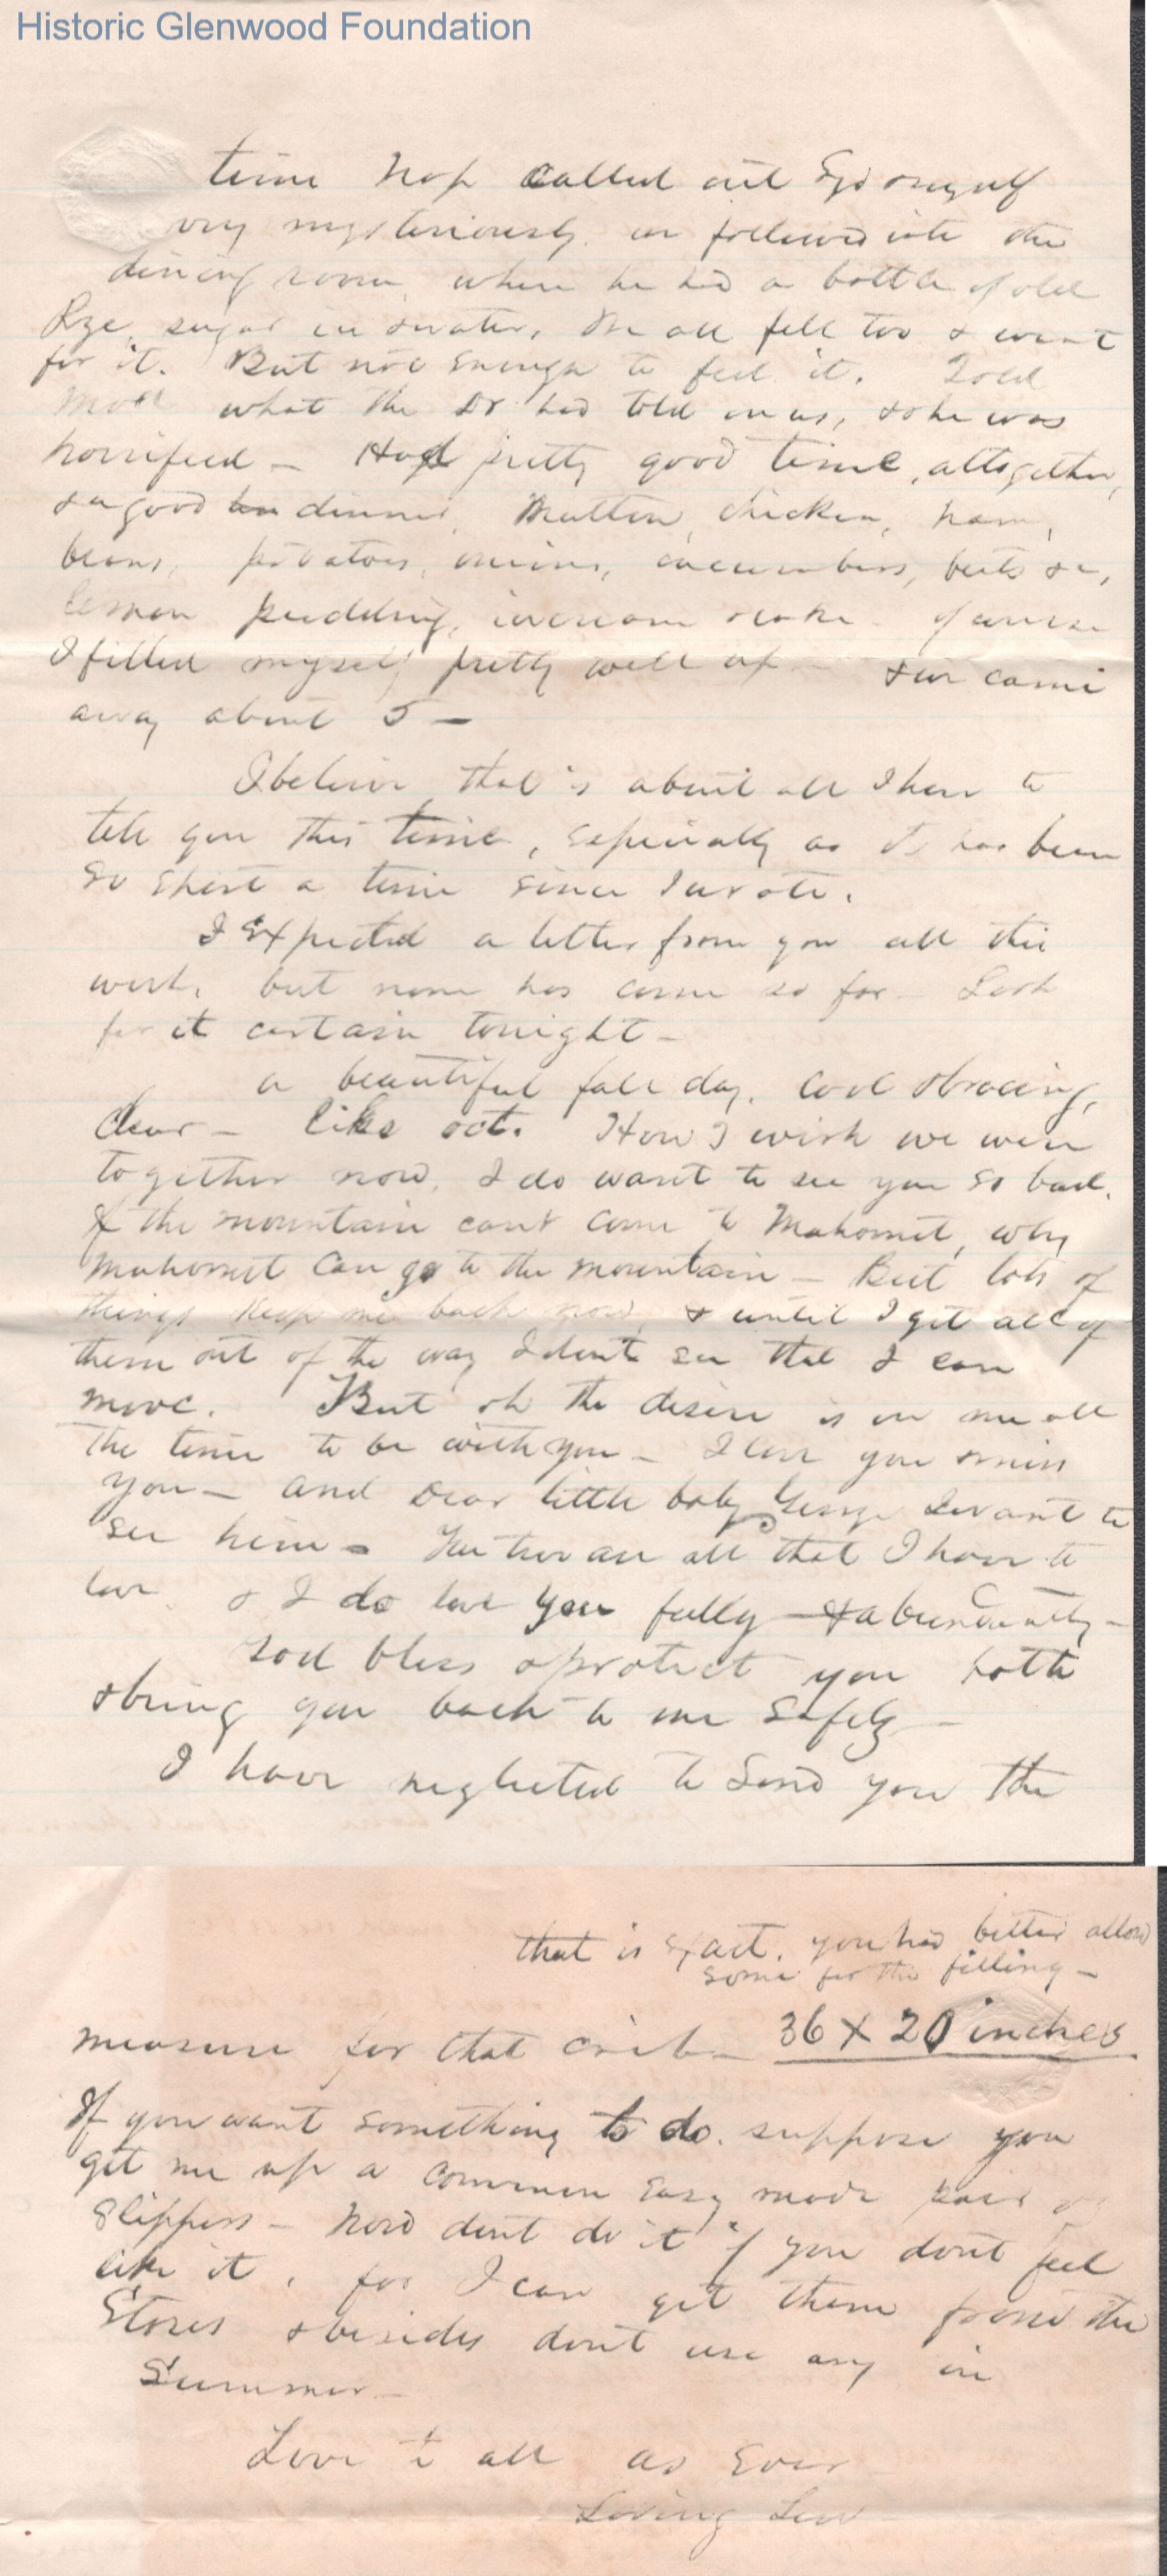 Historic Glenwood Foundation
time Hop called out Syd & myself
very mysteriously. we followed into the
dining room, where he had a bottle of old
Rye, sugar, ice & water, We all fell too & went
for it. But not enough to feel it. Told
Moll what the Dr had told on us, & she was
horrified – Had pretty good time, altogether,
& a good dinner. Mutton, chicken, ham,
beans, potatoes, onions, cucumbers, beets &c,
lemon pudding, icecream & cake. of course
I filled myself pretty well up – & we came
away about 5 –
I believe that's about all I have to
tell you this time, especially as it has been
so short a time since I wrote.
I expected a letter from you all this
week, but none has come so far – Look
for it certain tonight –
a beautiful fall day. Cool & bracing,
clear – like oct. How I wish we were
together now. I do want to see you so bad.
If the mountain cant come to Mahomet, why
Mahomet can go to the mountain – But lots of
things keep me back now, & until I get all of
them out of the way I dont see that I can
move. But oh the desire is on me all
the time to be with you – I love you & miss
you – and dear little baby George I want to
see him – You two are all that I have to
love & I do love you fully & abundantly –
God bless & protect you both
& bring you back to me safely –
I have neglected to send you the
that is exact. you had better allow
some for the filling –
measure for that crib – 36 X 20 inches
If you want something to do. suppose you
get me up a common easy made pair of
slippers – Now dont do it if you dont feel
like it, for I can get them from the
Stores & besides dont use any in
Summer –
Love to all as Ever
Loving Lew